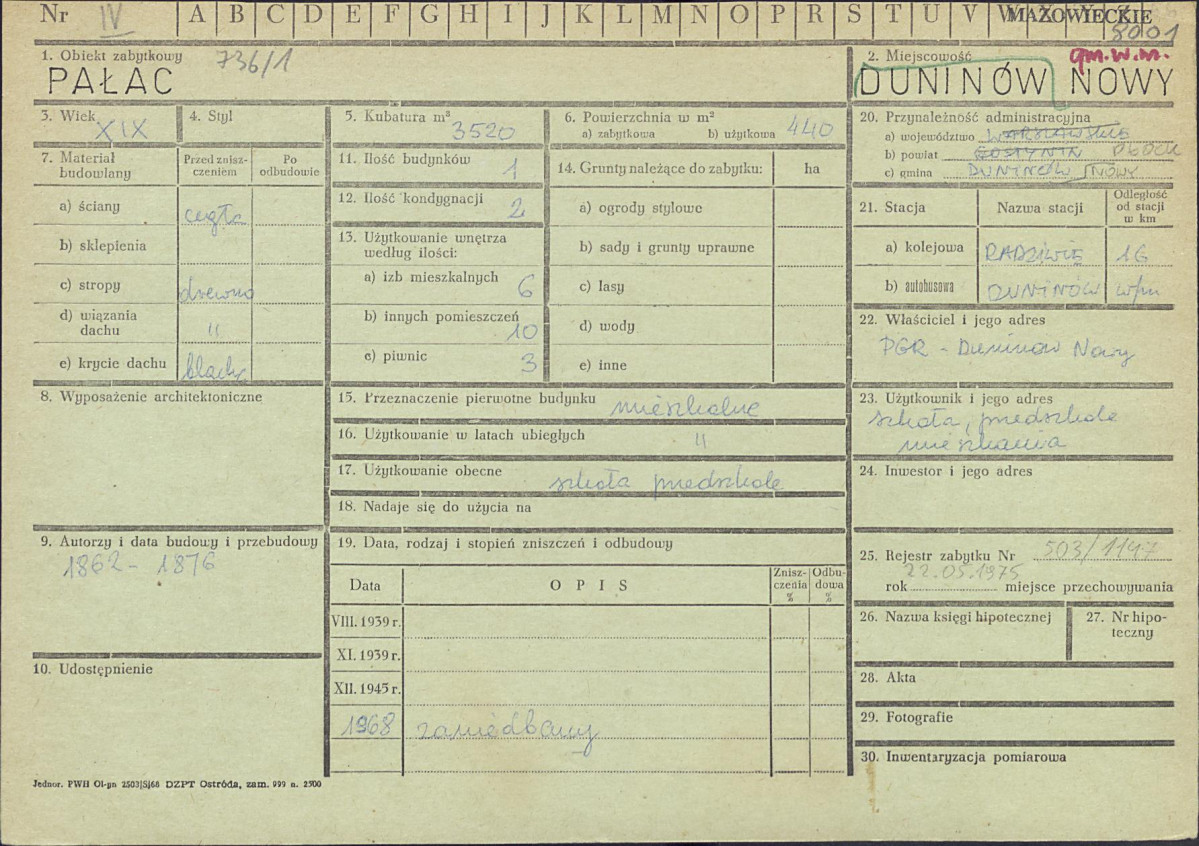 Nr IV A B C D E F G H I J K L M N O P R S T U V W MAZOWIECKIE
8001
1. Obiekt zabytkowy 736/1
PAŁAC
2. Miejscowość gm.w.m.
DUNINÓW NOWY
3. Wiek XIX
4. Styl
5. Kubatura m³ 3520
6. Powierzchnia w m²
a) zabytkowa b) użytkowa 440
7. Materiał budowlany
Przed zniszczeniem
Po odbudowie
a) ściany cegła
b) sklepienia
c) stropy drewno
d) wiązania dachu "
e) krycie dachu blacha
8. Wyposażenie architektoniczne
9. Autorzy i data budowy i przebudowy
1862 - 1876
10. Udostępnienie
11. Ilość budynków 1
12. Ilość kondygnacji 2
13. Użytkowanie wnętrza według ilości:
a) izb mieszkalnych 6
b) innych pomieszczeń 10
c) piwnic 3
14. Grunty należące do zabytku: ha
a) ogrody stylowe
b) sady i grunty uprawne
c) lasy
d) wody
e) inne
15. Przeznaczenie pierwotne budynku mieszkalne
16. Użytkowanie w latach ubiegłych "
17. Użytkowanie obecne szkoła przedszkole
18. Nadaje się do użycia na
19. Data, rodzaj i stopień zniszczeń i odbudowy
Data OPIS Zniszczenia % Odbudowa %
VIII. 1939 r.
XI. 1939 r.
XII. 1945 r.
1968 zaniedbany
20. Przynależność administracyjna
a) województwo WARSZAWSKIE
b) powiat GOSTYNIN PŁOCK
c) gmina DUNINÓW NOWY
21. Stacja Nazwa stacji Odległość od stacji w km
a) kolejowa RADZIWIE 16
b) autobusowa DUNINÓW w/m
22. Właściciel i jego adres
PGR - Duninów Nowy
23. Użytkownik i jego adres
szkoła, przedszkole
mieszkania
24. Inwestor i jego adres
25. Rejestr zabytku Nr 503/1197
22.05.1975
rok miejsce przechowywania
26. Nazwa księgi hipotecznej
27. Nr hipoteczny
28. Akta
29. Fotografie
30. Inwentaryzacja pomiarowa
Jednor. PWH Ol-yn 2503|Sj68 DZPT Ostróda, zam. 999 n. 2500